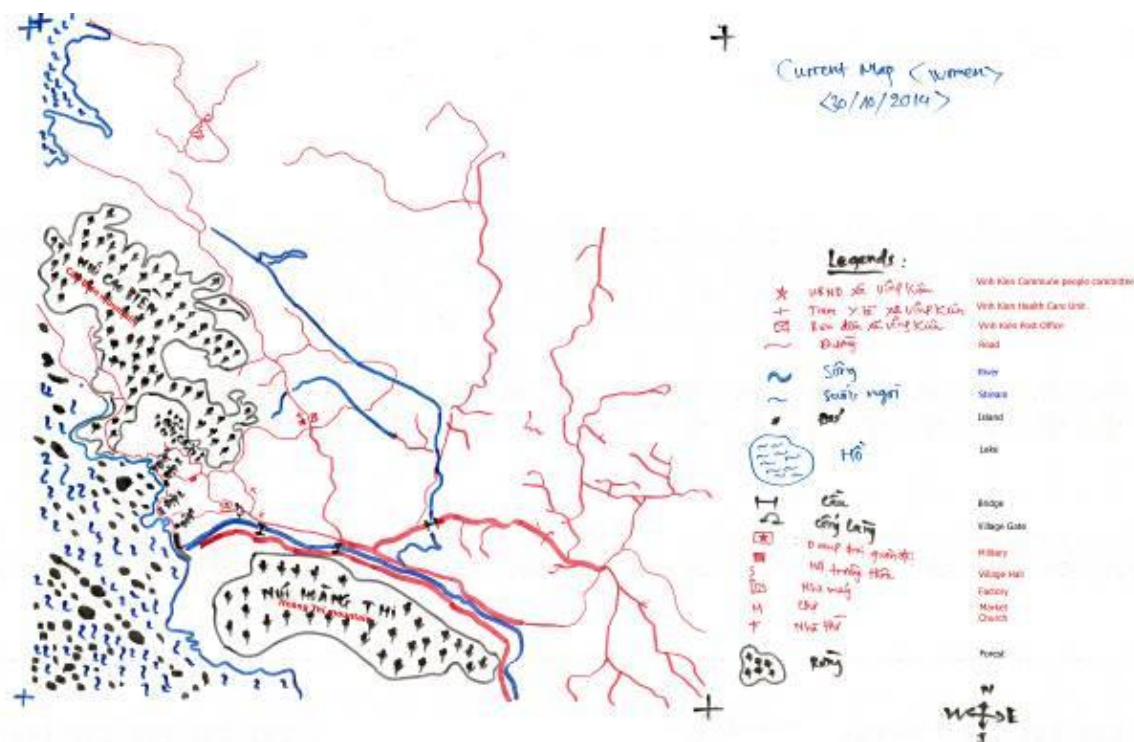 Current Map <women>
<30/10/2014>
NÚI CAO BIỀN
NÚI HOÀNG THI
Legends:
UBND xã Vĩnh Kiên
Vinh Kien Commune people committee
Trạm Y tế xã Vĩnh Kiên
Vinh Kien Health Care Unit.
Bưu điện xã Vĩnh Kiên
Vinh Kien Post Office
Đường
Road
Sông
River
Suối ngòi
Stream
Island
Hồ
Lake
Cầu
Bridge
Cổng làng
Village Gate
Military
Village Hall
Nhà máy
Factory
Chợ
Market
Nhà thờ
Church
Rừng
Forest
N
W E
S